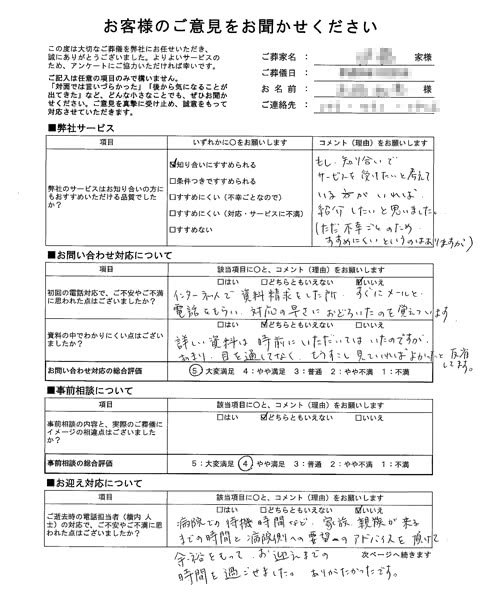 お客様のご意見をお聞かせください
この度は大切なご葬儀を弊社にお任せいただき、
誠にありがとうございました。よりよいサービスの
ため、アンケートにご協力いただければ幸いです。
ご記入は任意の項目のみで構いません。
「対面では言いづらかった」「後から気になることが
出てきた」など、どんな小さなことでも、ぜひお聞か
せください。ご意見を真摯に受け止め、誠意をもって
対応させていただきます。
ご葬家名： 家様
ご葬儀日：
お名前： 様
ご連絡先：
■弊社サービス
項目 いずれかに○をお願いします コメント（理由）をお願いします
弊社のサービスはお知り合いの方に
もおすすめいただける品質でした
か？
☑知り合いにすすめられる
□条件つきですすめられる
□すすめにくい（不幸ごとなので）
□すすめにくい（対応・サービスに不満）
□すすめない
もし、知り合いで
サービスを受けたいと考えて
いる方がいれば、
紹介したいと思いました。
(ただ不幸ごとのため
すすめにくいというのはありますが)
■お問い合わせ対応について
項目 該当項目に○と、コメント（理由）をお願いします
初回の電話対応で、ご不安やご不満
に思われた点はございましたか？
□はい □どちらともいえない ☑いいえ
インターネットで資料請求をした所、すぐにメールと
電話をもらい、対応の早さにおどろいたのを覚えています
資料の中でわかりにくい点はござい
ましたか？
□はい ☑どちらともいえない □いいえ
詳しい資料は時前にいただいてはいたのですが、
あまり、目を通してなく、もうすこし見ていればよかったと反省
してます。
お問い合わせ対応の総合評価 ⑤：大変満足 4：やや満足 3：普通 2：やや不満 1：不満
■事前相談について
項目 該当項目に○と、コメント（理由）をお願いします
事前相談の内容と、実際のご葬儀に
イメージの相違点はございました
か？
□はい ☑どちらともいえない □いいえ
事前相談の総合評価 5：大変満足 ④：やや満足 3：普通 2：やや不満 1：不満
■お迎え対応について
項目 該当項目に○と、コメント（理由）をお願いします
ご逝去時の電話担当者（横内 人
士）の対応で、ご不安やご不満に思
われた点はございましたか？
□はい □どちらともいえない ☑いいえ
病院での待機時間など、家族、親族が来る
までの時間と病院側への要望のアドバイスを頂けて
余裕をもって、お迎えまでの
時間を過ごせました。ありがたかったです。
次ページへ続きます